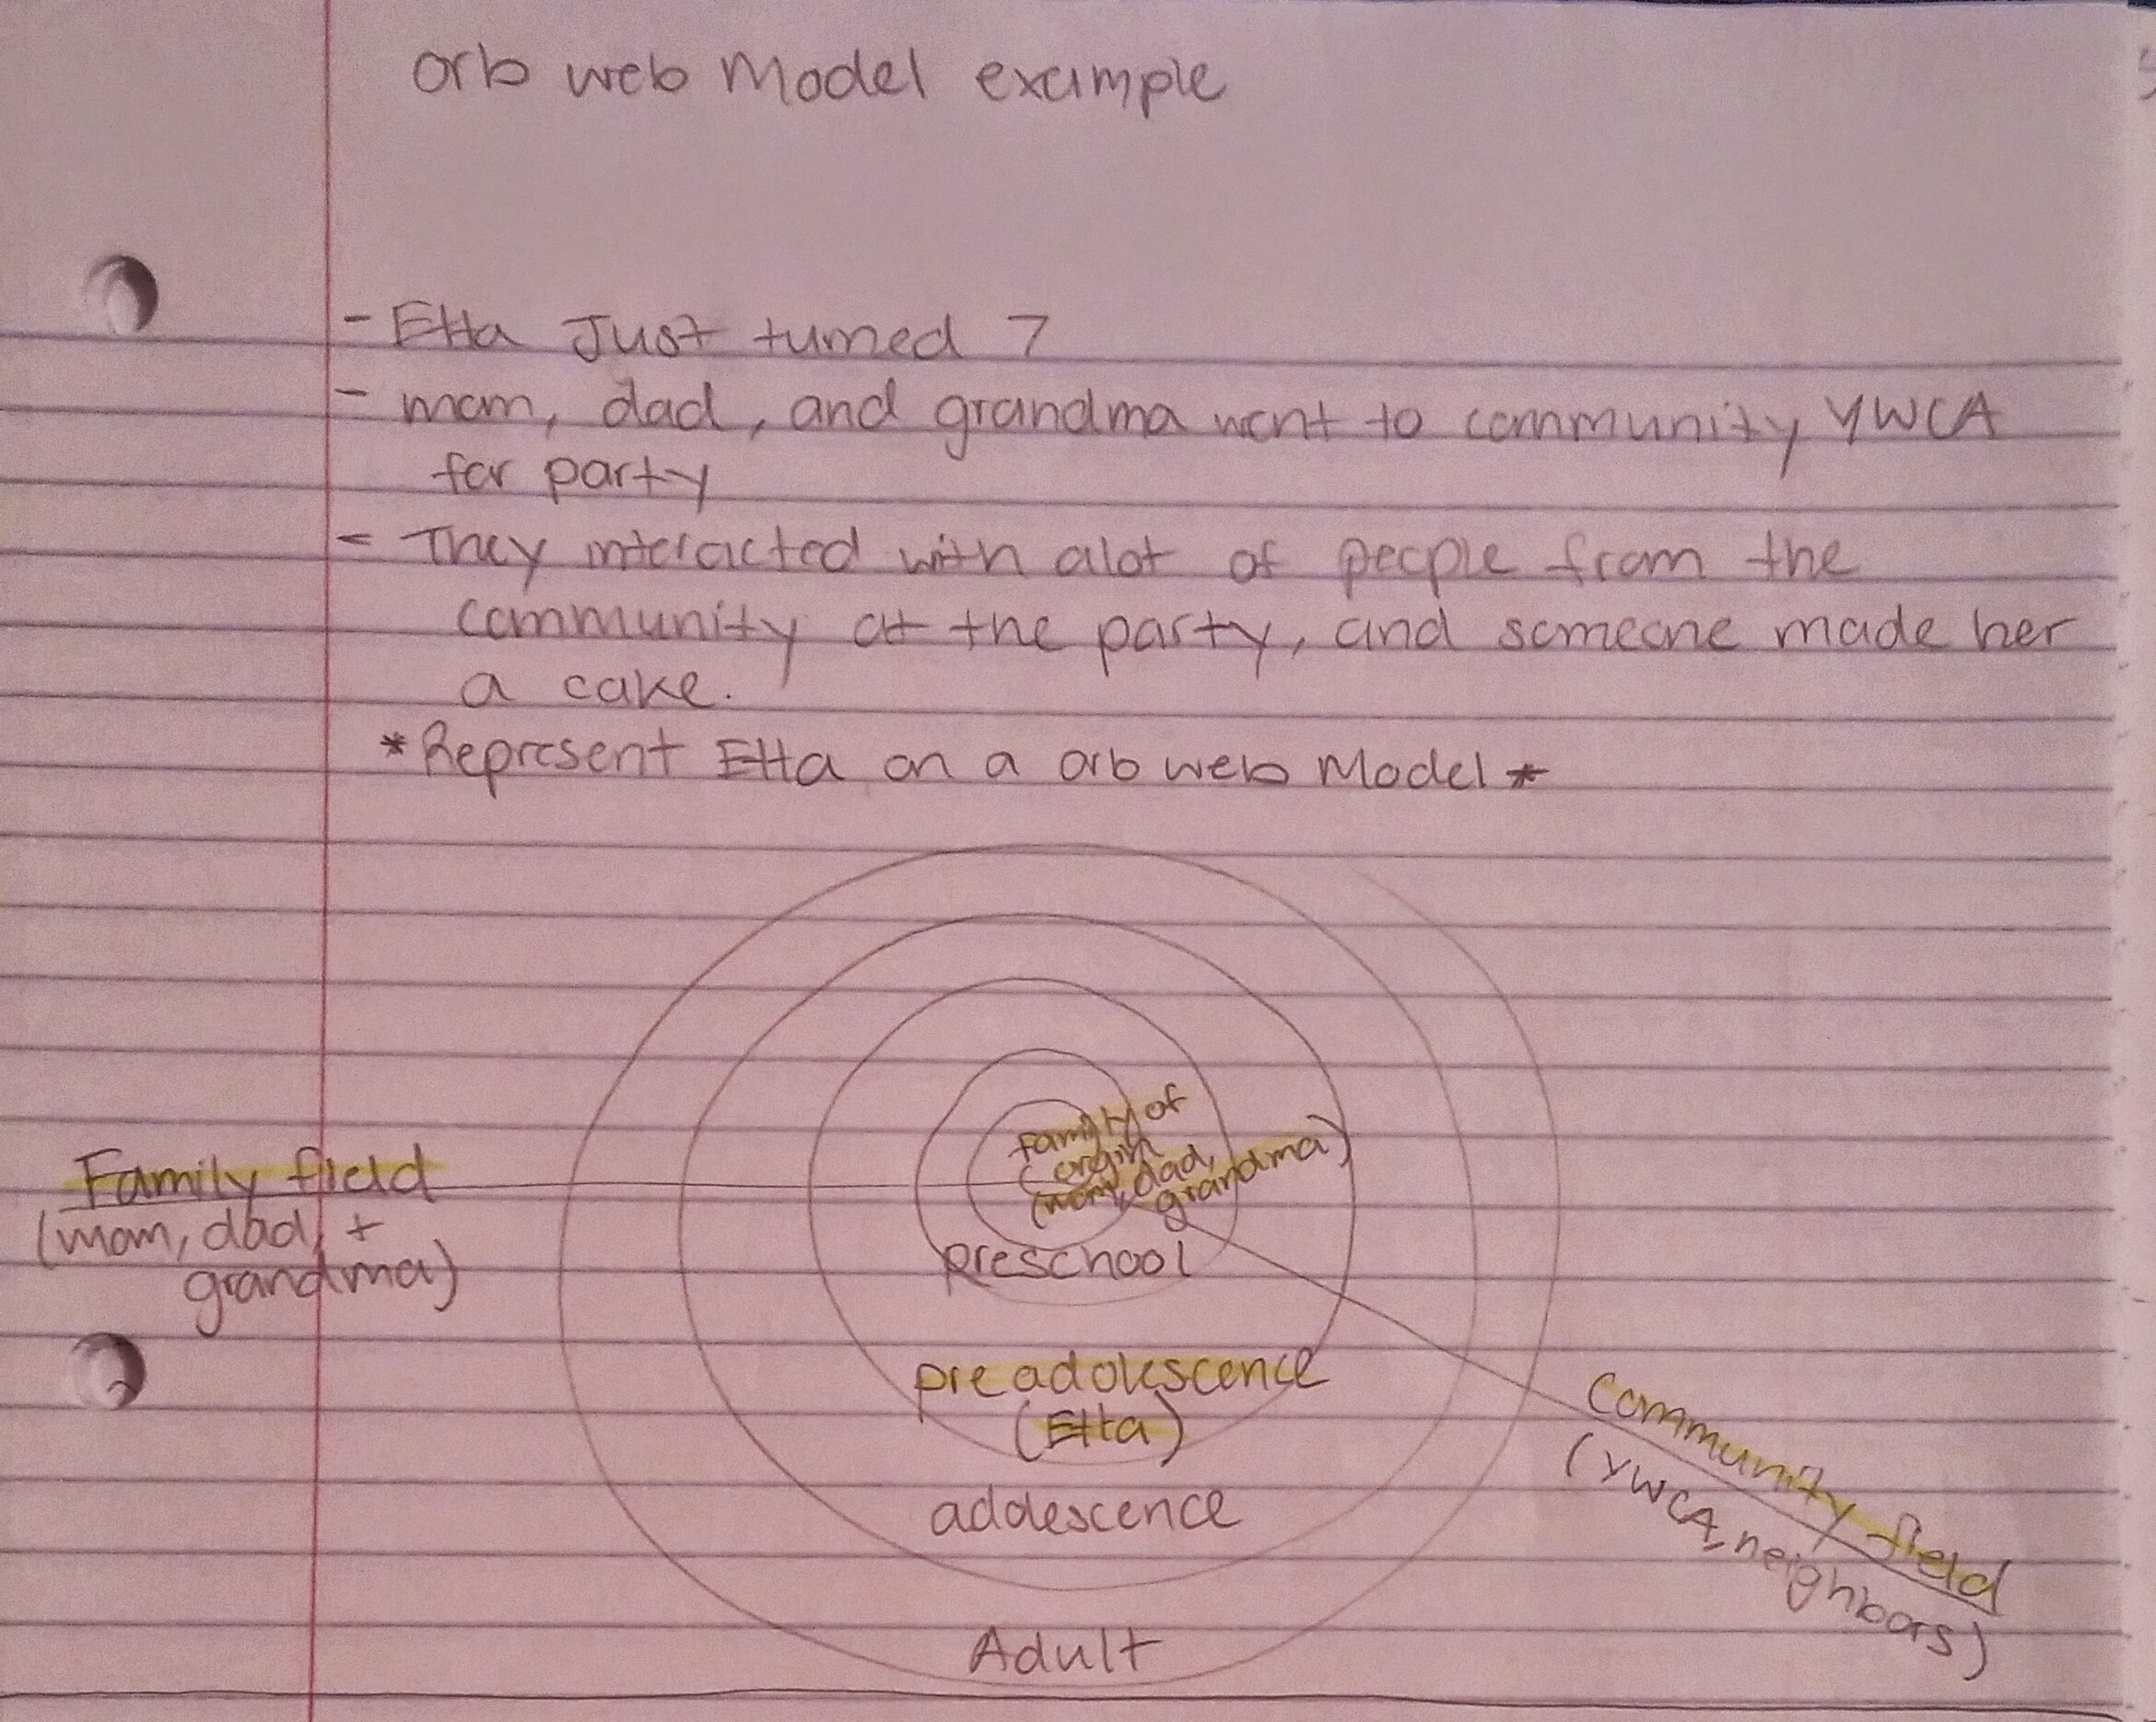 orb web Model example
- Etta Just turned 7
- mom, dad, and grandma went to community YWCA
for party
- They interacted with alot of people from the
community at the party, and someone made her
a cake.
*Represent Etta on a orb web Model*
Family of
origin
(mom, dad,
grandma)
Family field
(mom, dad, +
grandma)
preschool
preadolescence
(Etta)
adolescence
Adult
Community field
(YWCA, neighbors)